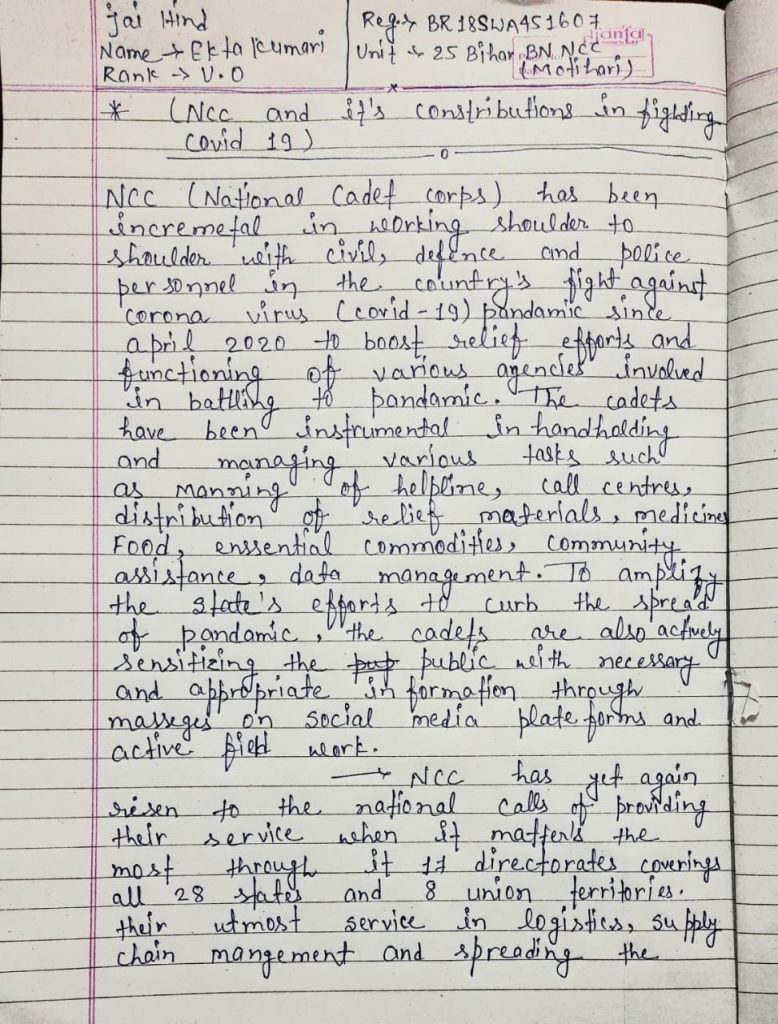 Jai Hind
Name → Ekta Kumari
Rank → U.O
Reg. → BR18SWA451607
Unit → 25 Bihar BN NCC
(Motihari)
* (NCC and it's constributions in fighting
covid 19)
NCC (National Cadet corps) has been
incremetal in working shoulder to
shoulder with civil, defence and police
personnel in the country's fight against
corona virus (covid-19) pandamic since
april 2020 to boost relief efforts and
functioning of various agencies involved
in battling to pandamic. The cadets
have been instrumental in handholding
and managing various tasks such
as manning of helpline, call centres,
distribution of relief materials, medicines
Food, enssential commodities, community
assistance, data management. To amplify
the state's efforts to curb the spread
of pandamic, the cadets are also actively
sensitizing the public with necessary
and appropriate information through
masseges on social media plateforms and
active field work.
→ NCC has yet again
risen to the national calls of providing
their service when it matters the
most through it 17 directorates coverings
all 28 states and 8 union territories.
their utmost service in logistics, supply
chain mangement and spreading the